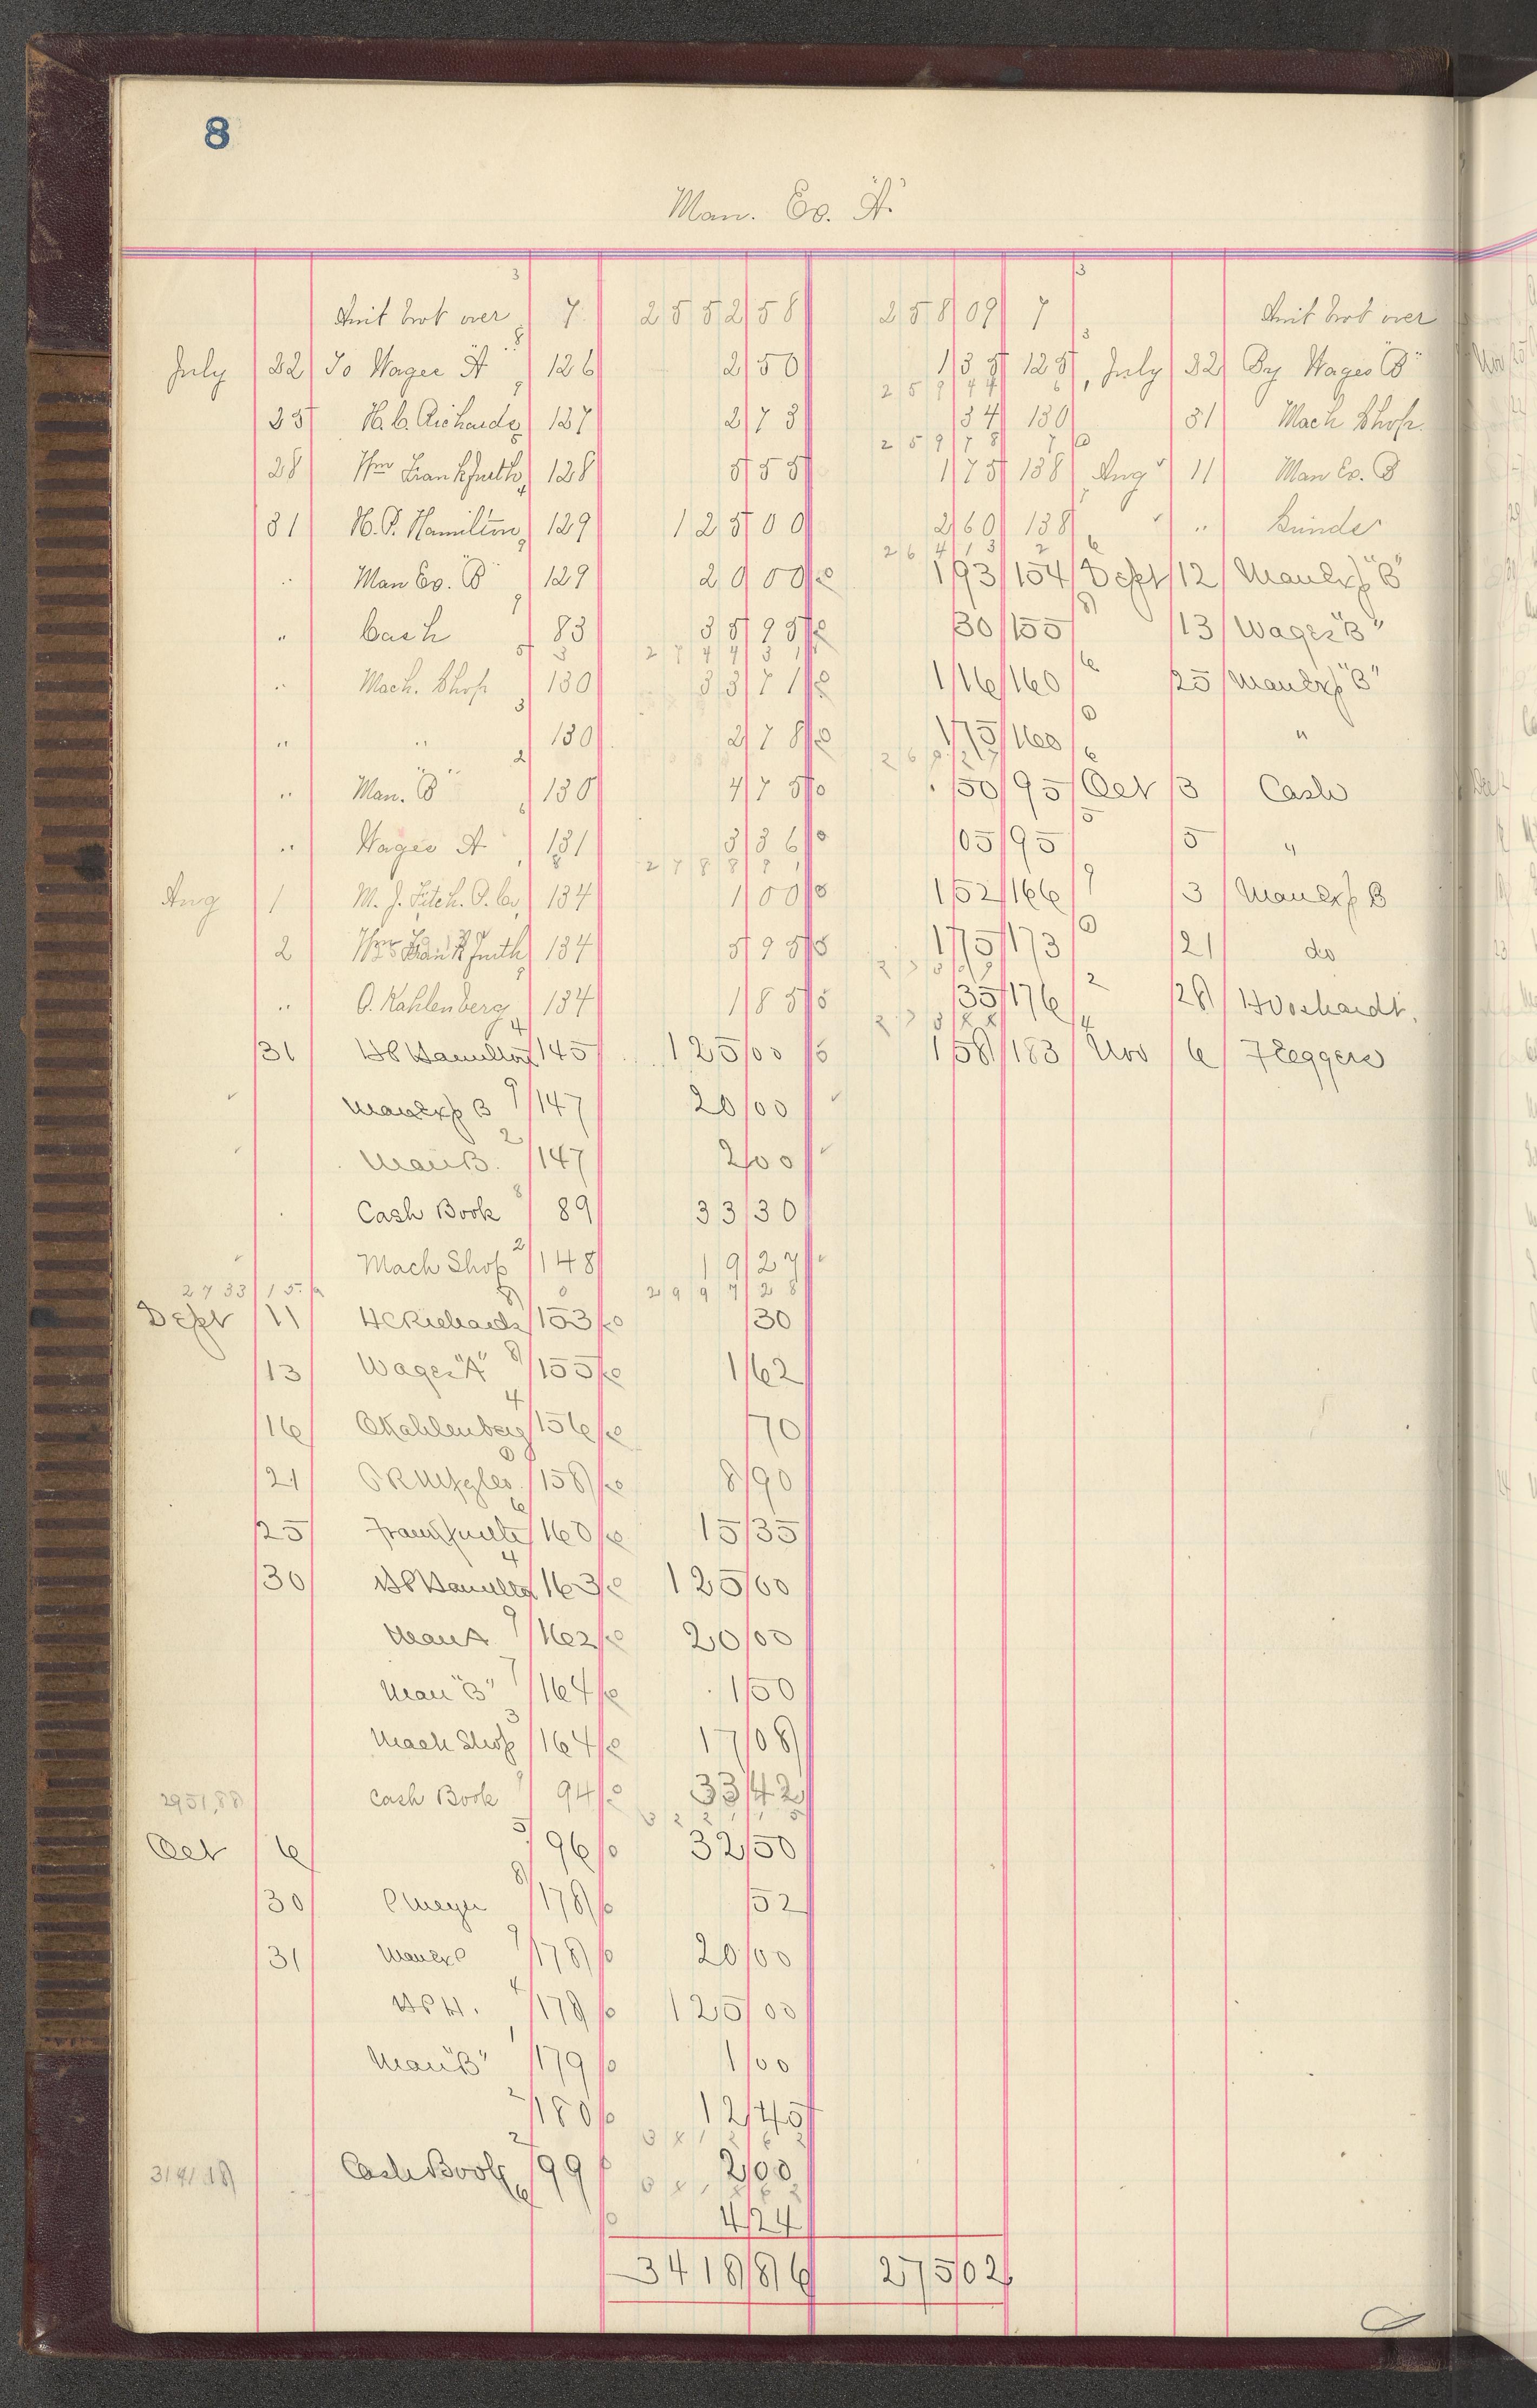 8
Man. Ex. "A"
Amt brot over 7 2552 58 258 09 7 Amt brot over
July 22 To Wages "A" 126 2 50 1 35 125 July 22 By Wages "B"
259 44
25 H. C. Richards 127 2 73 34 130 31 Mach Shop.
259 78
28 Wm Frankfurth 128 5 55 1 75 138 Aug 11 Man Ex. B
31 H. P. Hamilton 129 125 00 2 60 138 " Sundr
264 13
" Man Ex. "B" 129 20 00 1 93 154 Sept 12 Man Exp "B"
" Cash 83 35 95 30 155 13 Wages "B"
2744 31
" Mach. Shop 130 33 71 1 16 160 25 Man Exp "B"
" " 130 2 78 1 75 160 "
" Man. "B" 130 4 75 50 95 Oct 3 Cash
" Wages A 131 3 36 05 95 5 "
2788 91
Aug 1 M. J. Fitch. P. Co. 134 1 00 1 52 166 3 Man Exp B
2 Wm Frankfurth 134 5 95 1 75 173 21 do
" O. Kahlenberg 134 1 85 35 176 28 H Voshardt.
31 HP Hamilton 145 125 00 1 58 183 Nov 6 F Eggers
Man Exp B 147 20 00
Man B. 147 2 00
Cash Book 89 33 30
Mach Shop 148 19 27
2733 15 2997 28
Sept 11 HC Richards 153 30
13 Wages "A" 155 1 62
16 O Kahlenberg 156 70
21 158 8 90
25 Frankfurth 160 15 35
30 HP Hamilton 163 125 00
Man A 162 20 00
Man "B" 164 1 50
Mach Shop 164 17 08
2951,88 Cash Book 94 33 42
Oct 6 96 32 50
30 C Meyer 178 52
31 Man Exp 178 20 00
HPH. 178 125 00
Man "B" 179 1 00
180 12 45
3141 18 Cash Book 99 2 00
4 24
3418 86 275 02